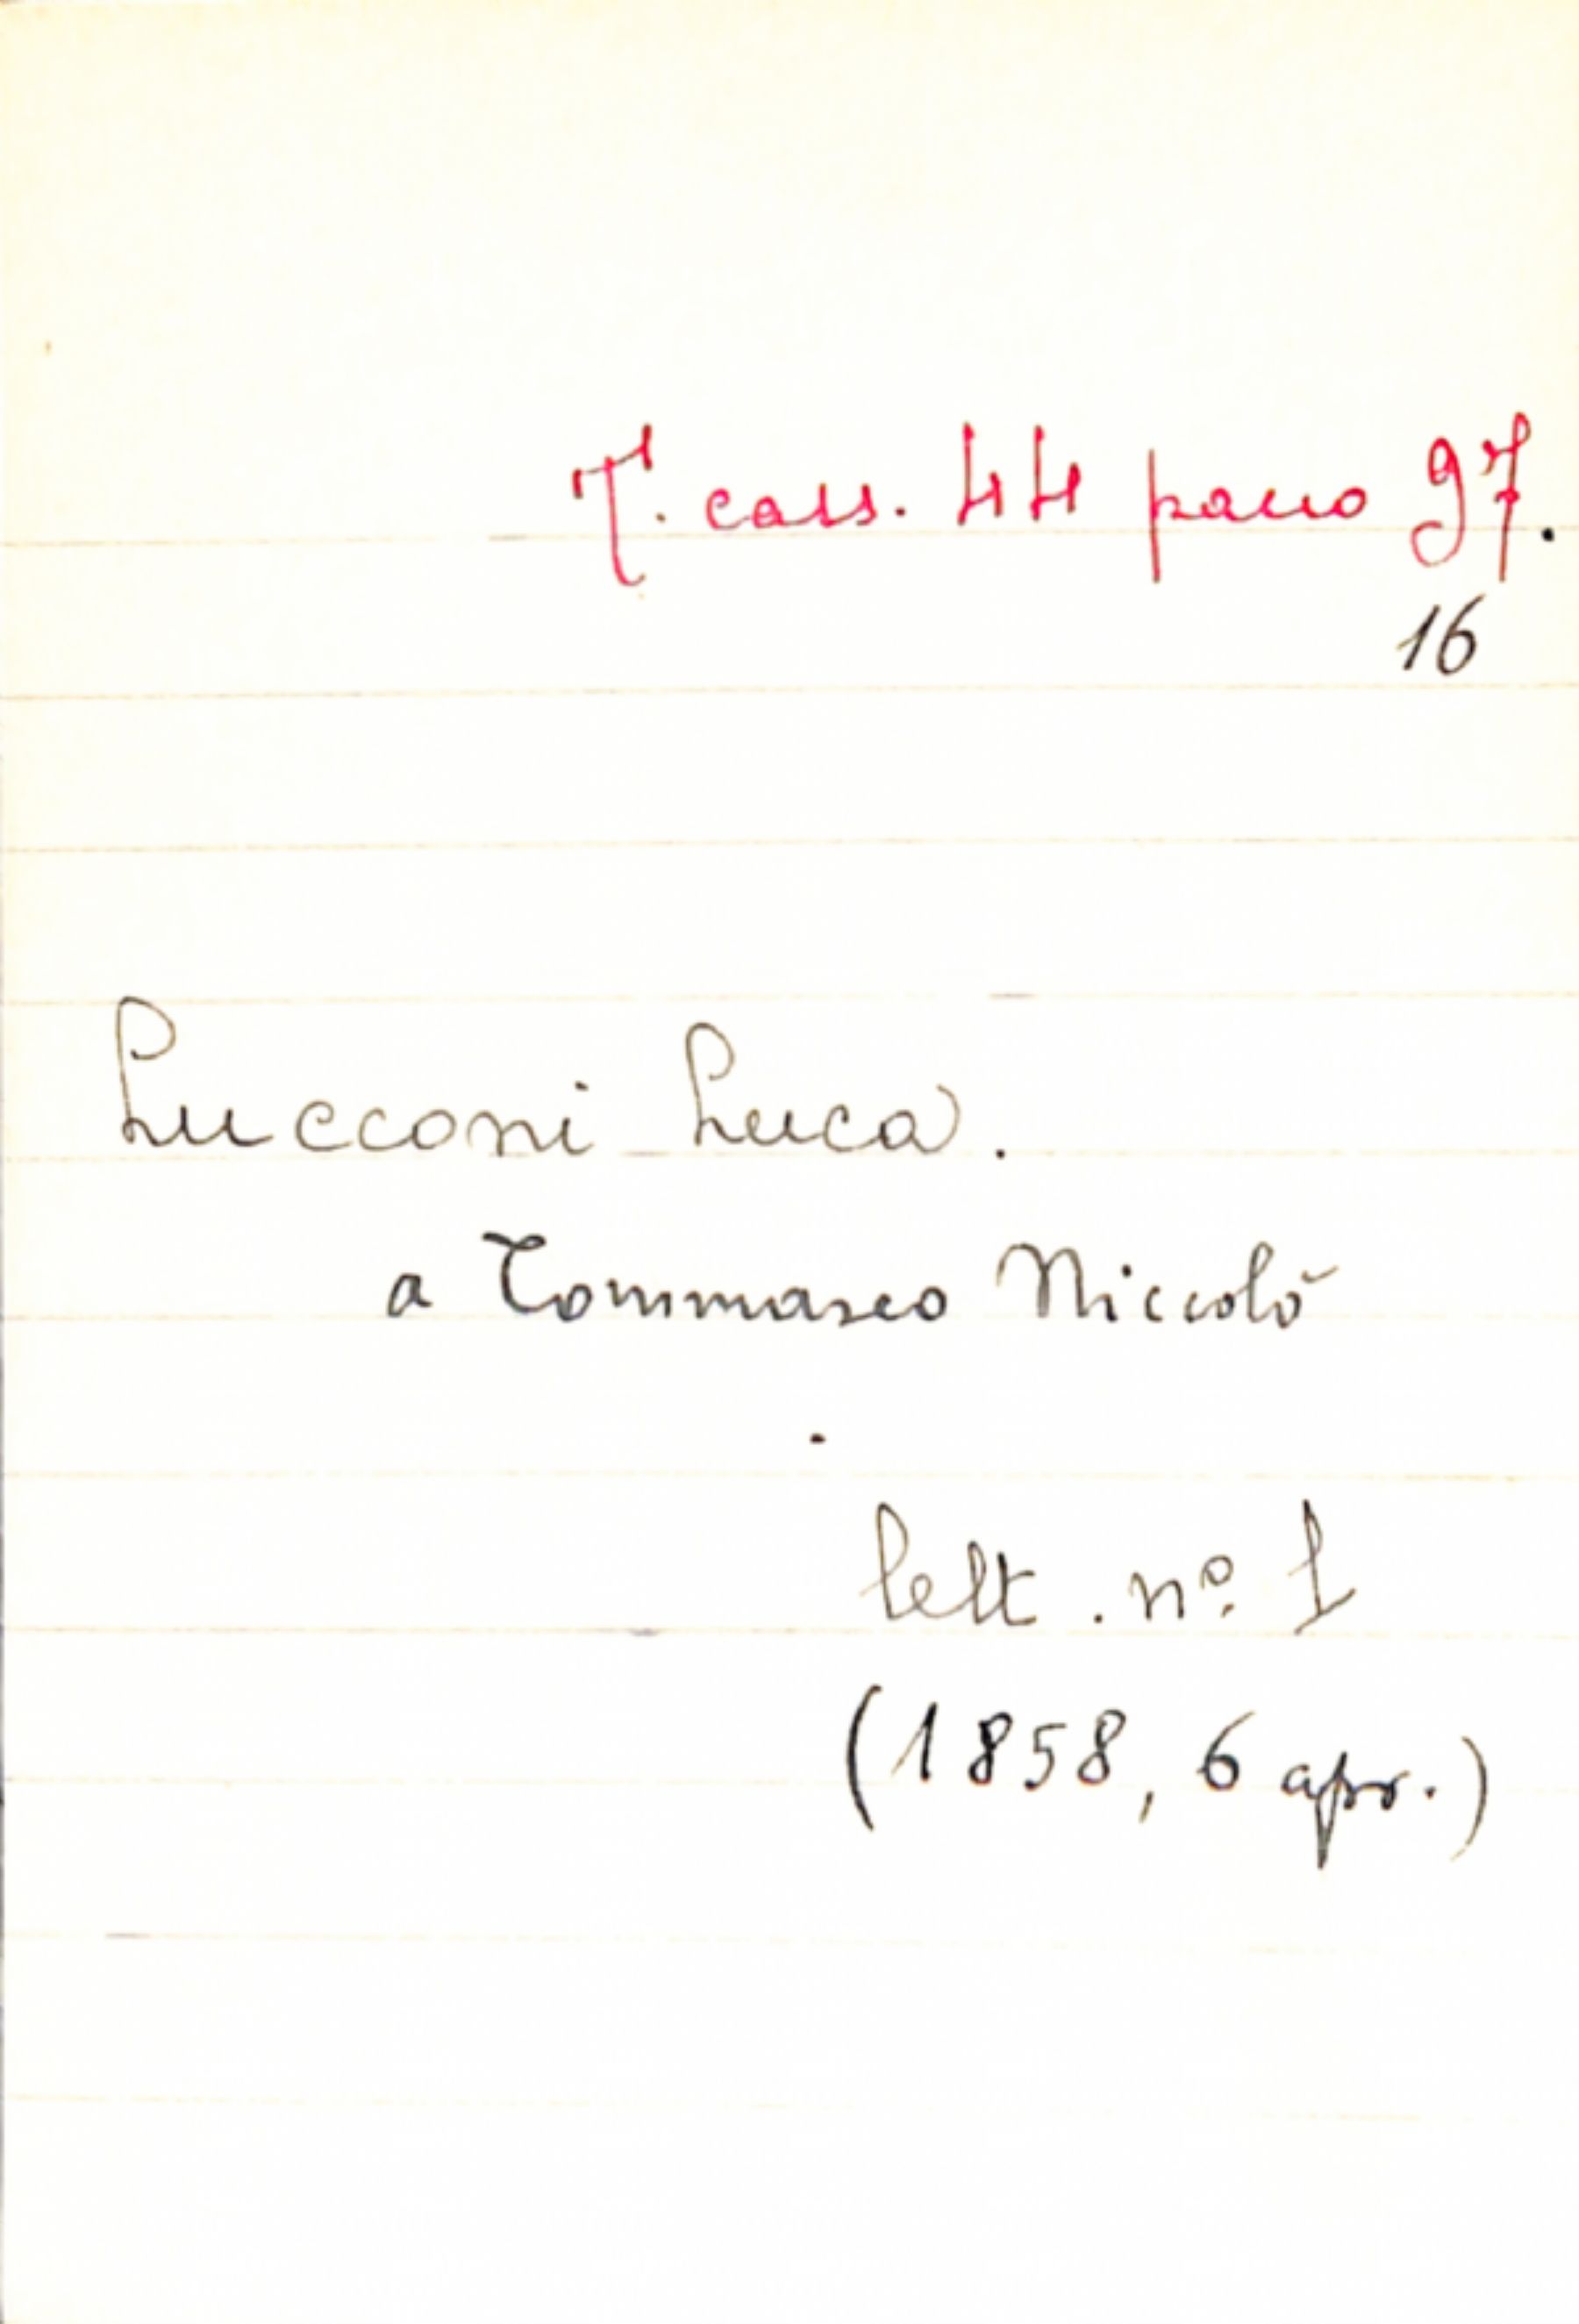 T. cass. 44 pacco 97.
16
Lucconi Luca.
a Tommaseo Niccolò
lett. nº. 1
(1858, 6 apr.)